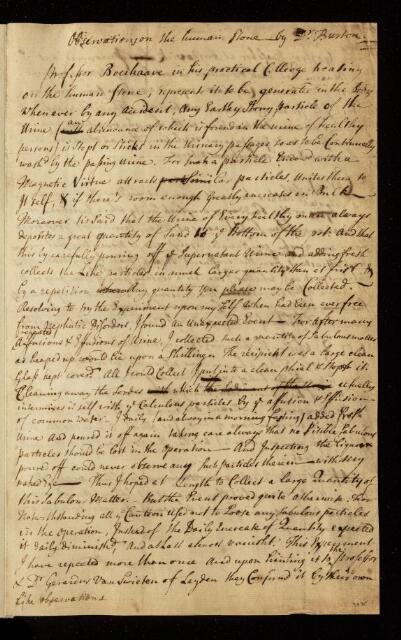 Observations on the human Stone by Dr. Burton
Professor Boerhaave in his practical College treating
on the human Stone, represents it to be generated in the Body
whenever by any accident, Any Earthy Stony particle of the
Urine (an abundance of which is found in the urine of healthy
persons) is Stopt or Sticks in the Urinary passages so as to be Continually
wash'd by the passing Urine. For such a particle Endued with a
Magnetic Virtue attracts similar particles, Unites them to
it self, & if there's room enough greatly encreases in Bulk
Moreover he Said that the Urine of Every healthy man always
deposites a great quantity of Sand to ye Bottom of the pot And that
this by carefully pouring off ye Supernatant Urine and adding fresh
collects the Like particles in much larger quantity than at first &
by a repetition any quantity you please may be Collected.
Resolving to try the Experiment upon my Self who had been ever free
from Nephritic disorders I found an Unexpected Event For after many
repeated
Affusions & Effusions of Urine, I collected such a quantity of Sabulous matter
as heaped up could lie upon a Shilling. The recipient was a large clean
Glass kept covered. All I could Collect I put into a clean phial & stopt it
Cleaning away the Sordes which usually
intermixes it self with ye Calculous particles By ye affusion & Effusion
of common water. I daily (and always in a morning fasting) added fresh
Urine And poured it off again taking care always that no Visible Sabulous
particles should be lost in the Operation And Inspecting the Liquor
poured off could never observe any Such particles therein with my
naked eye Thus I hoped at Length to Collect a large Quantity of
this Sabulous Matter. But the Event proved quite otherwise. For
Notwithstanding all ye Caution used not to Loose any Sabulous particles
in the Operation, Instead of the Daily Encrease of Quantity expected
it daily diminished, And at last almost vanish'd. This Experiment
I have repeated more than once And upon hinting it to the professor
& Dr. Gerard Van Swieten of Leyden they Confirmed it by their own
Like observations.